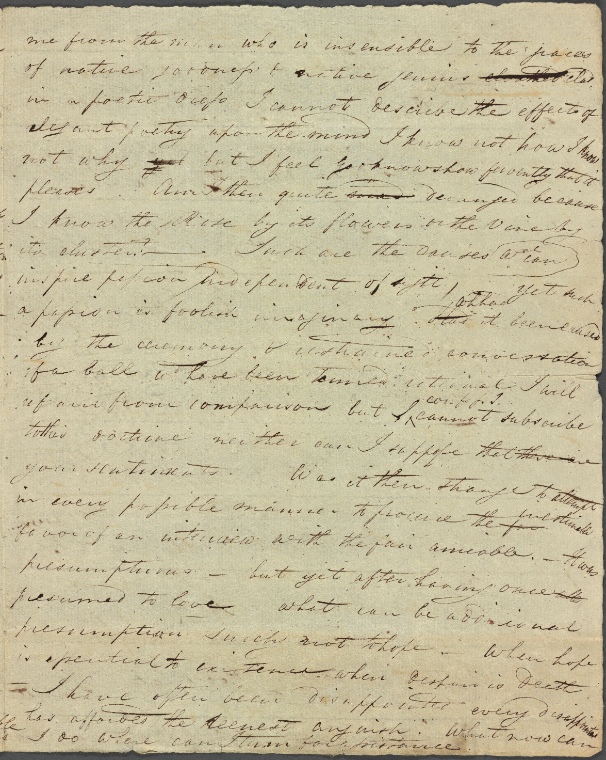 me from the man who is insensible to the graces
of native goodness & native genius clad
in a poetic dress I cannot describe the effects of
elegant poetry upon the mind I know not how I know
not why but I feel & know how fervently that it
pleases Am I then quite deranged because
I know the Rose by its flowers or the Vine by
its clusters? Such are the causes wh can
inspire passion independent of sight, yet such
a passion is foolish imaginary had it been raised
by the ceremony & restrained conversation
of a ball it have been termed rational I will
refrain from comparison but I confess cannot subscribe
to this doctrine neither can I suppose that these are
your sentiments. Was it then strange to attempt
in every possible manner to procure the inestimable
favor of an interview with the fair amiable. — It was
presumptuous — but yet after having once
presumed to love what can be additional
presumption surely not to hope — When hope
is essential to existence when despair is Death
I have often been disappointed every disappointment
has afforded the keenest anguish. What now can
I do where can I turn for assistance